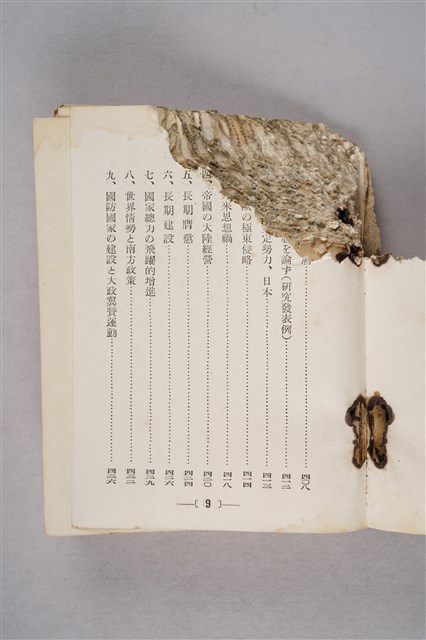 四〇八
を論ず(研究發表例)……四一二
定勢力、日本……四一三
の極東侵略……四一四
來思想禍……四一八
四、帝國の大陸經營……四二〇
五、長期膺懲……四二四
六、長期建設……四二六
七、國家總力の飛躍的增進……四二九
八、世界情勢と南方政策……四三二
九、國防國家の建設と大政翼贊運動……四三六
—〔 9 〕—